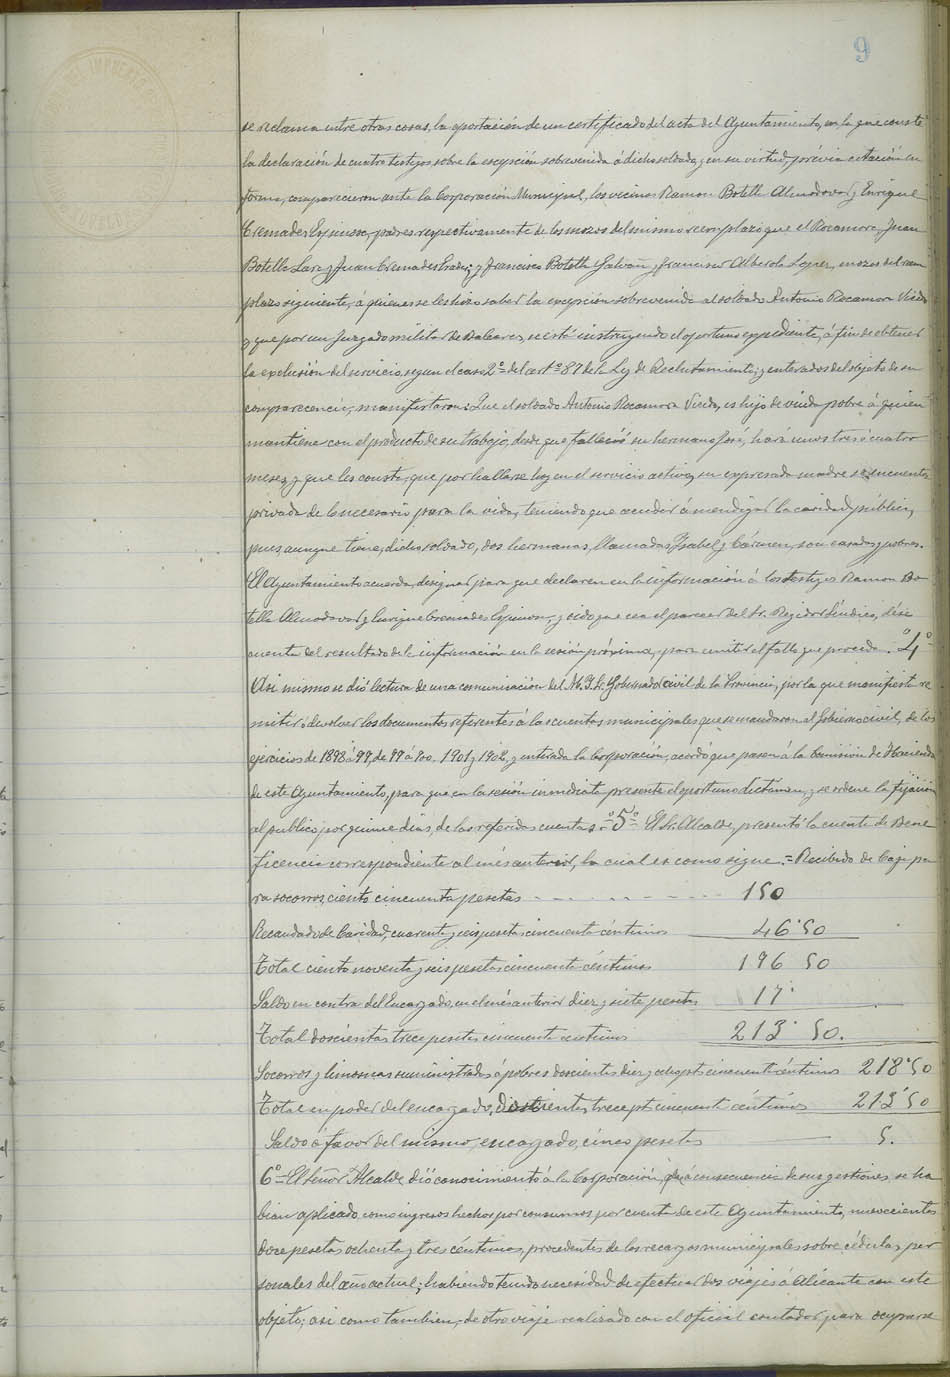 9
se reclama entre otras cosas, la aportación de un certificado del acta del Ayuntamiento, en la que conste
la declaración de cuatro testigos sobre la escepción sobrevenida á dicho soldado, y en su virtud, prévia citación en
forma, comparecieron ante la Corporación Municipal, los vecinos Ramon Botella Almodovar y Enrique
Cremades Espinosa, padres respectivamente de los mozos del mismo reemplazo que el Rocamora, Juan
Botella Lara y Juan Cremades; y Francisco Botella Galvañ y Francisco Alberola Lopez, mozos del reem
plazo siguiente, á quienes se les hizo saber la excepción sobrevenida al soldado Antonio Rocamora Viedo
y que por un Juzgado militar de Baleares, se está instruyendo el oportuno expediente, á fin de obtener
la exclusión del servicio, segun el caso 2º del artº 87 de la Ley de Reclutamiento; y enterados del objeto de su
comparecencia, manifestaron: Que el soldado Antonio Rocamora Viedo, es hijo de viuda pobre á quien
mantiene con el producto de su trabajo, desde que falleció su hermano José, hará unos tres ó cuatro
meses, y que les consta, que por hallarse hoy en el servicio activo, su expresada madre se encuentra
privada de lo necesario para la vida, teniendo que acudir á mendigar la caridad pública,
pues aunque tiene, dicho soldado, dos hermanas, llamadas Isabel y Cármen, son casadas y pobres.
El Ayuntamiento acuerda, designar para que declaren en la información á los testigos Ramon Bo-
tella Almodovar y Enrique Cremades Espinosa, y oido que sea el parecer del Sr. Regidor Síndico, dése
cuenta del resultado de la información en la sesión próxima, para emitir el fallo que proceda. 4º
Asi mismo se dió lectura de una comunicación del M. I. Sr. Gobernador civil de la Provincia, por la que manifiesta re
mitir ó devolver los documentos referentes á las cuentas municipales que se mandaron al Gobierno civil, de los
ejercicios de 1898 á 99, de 99 á 900, 1901 y 1902, y enterada la Corporación, acordó que pasen á la Comisión de Hacienda
de este Ayuntamiento, para que en la sesión inmediata presente el oportuno dictámen, y se ordene la fijación
al publico por quince dias, de las referidas cuentas. 5º El Sr. Alcalde, presentó la cuenta de Bene
ficencia correspondiente al més anterior, la cual es como sigue. = Recibido de Caja pa
ra socorros, ciento cincuenta pesetas 150
Recaudado de Caridad, cuarenta y seis pesetas cincuenta céntimos 46'50
Total ciento noventa y seis pesetas cincuenta céntimos 196 50
Saldo en contra del Encargado, en el més anterior diez y siete pesetas 17'
Total doscientas trece pesetas cincuenta céntimos 213'50.
Socorros y limosnas suministradas á pobres doscientas diez y ocho pts cincuenta céntimos 218'50
Total en poder del encargado, doscientas trece pts cincuenta céntimos 213'50
Saldo á favor del mismo encargado, cinco pesetas 5.
6º El Señor Alcalde dió conocimiento á la Corporación, que á consecuencia de sus gestiones, se ha
bian aplicado como ingresos hechos por consumos por cuenta de este Ayuntamiento, nuevecientas
doce pesetas ochenta y tres céntimos, procedentes de los recargos municipales sobre cédulas per
sonales del año actual; habiendo tenido necesidad de efectuar dos viajes á Alicante con este
objeto; asi como tambien, de otro viaje realizado con el oficial contador para ocuparse